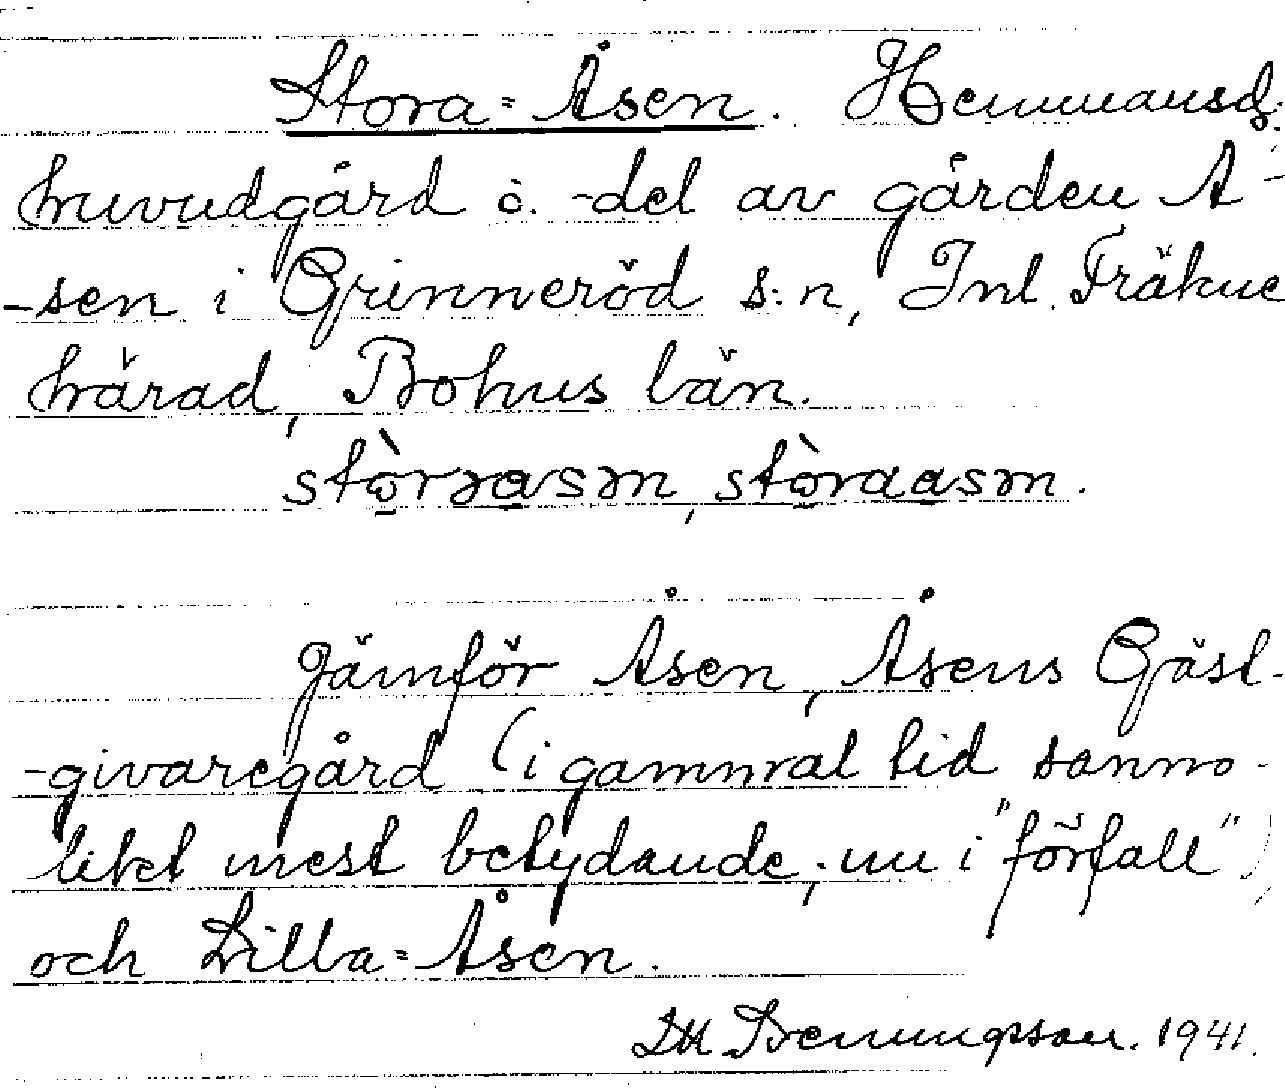 Stora=Åsen. Hemmansd;
huvudgård o. -del av gården Å-
-sen i Grinneröd s:n, Inl. Fräkne
härad, Bohus län.
stòrɘasɘn, stòraasɘn.
Jämför Åsen, Åsens Gäst-
-givaregård (i gammal tid sanno-
likt mest betydande; nu i "förfall")
och Lilla=Åsen.
1941.